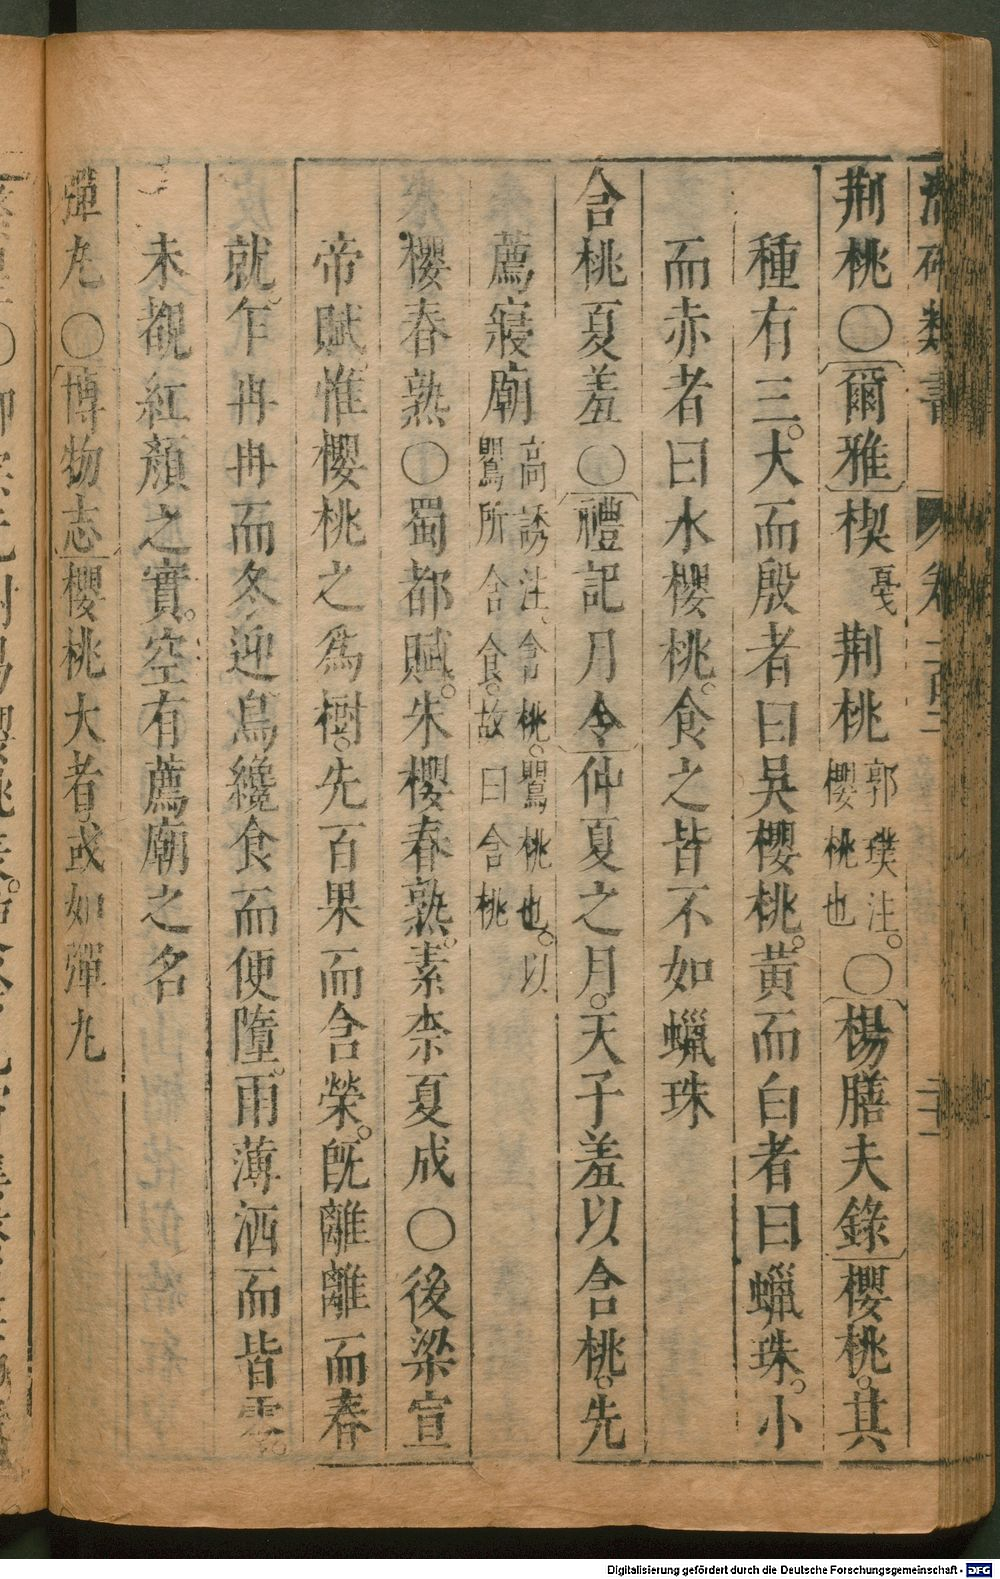 類書
荆桃〇爾雅楔戛荆桃郭璞注。櫻桃也〇楊膳夫錄櫻桃。其
種有三。大而殷者曰吳櫻桃。黃而白者曰蠟珠。小
而赤者曰水櫻桃。食之皆不如蠟珠
含桃夏羞〇禮記月令仲夏之月。天子羞以含桃。先
薦寢廟高誘注。含桃。鸎桃也。以鸎所含食。故曰含桃
櫻春熟〇蜀都賦。朱櫻春熟。素柰夏成〇後梁宣
帝賦惟櫻桃之爲樹。先百果而含榮。旣離離而春
就。乍冉冉而冬迎鳥纔食而便墮。雨薄洒而皆零。
未覩紅顏之實。空有薦廟之名
彈丸〇博物志櫻桃大者或如彈丸
Digitalisierung gefördert durch die Deutsche Forschungsgemeinschaft - DFG